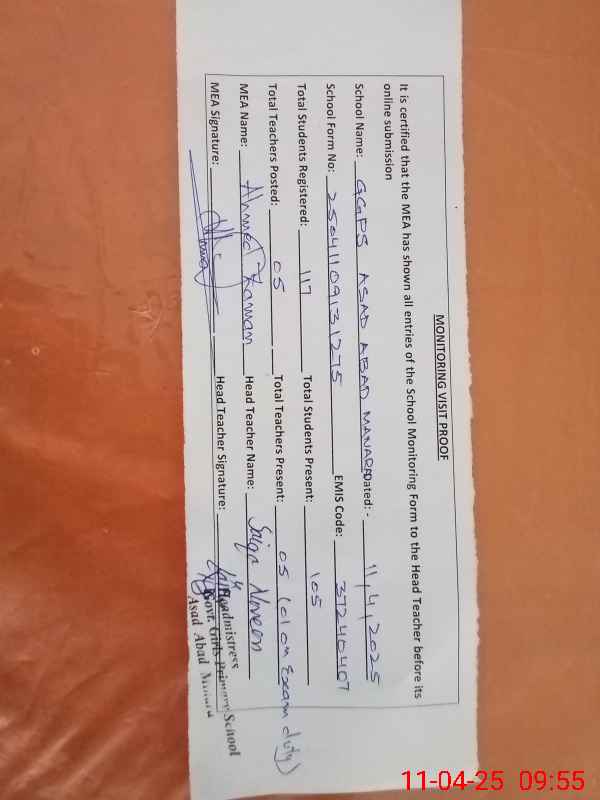 MONITORING VISIT PROOF
It is certified that the MEA has shown all entries of the School Monitoring Form to the Head Teacher before its
online submission
School Name: GGPS ASAD ABAD MANARA Dated: - 11/4/2025
School Form No: 25041109131275 EMIS Code: 37240407
Total Students Registered: 117 Total Students Present: 105
Total Teachers Posted: 05 Total Teachers Present: 05 (01 on Exam duty)
MEA Name: Ahmed Zaman Head Teacher Name: Saiqa Noreen
MEA Signature: Head Teacher Signature:
Headmistress
Govt. Girls Primary School
Asad Abad
11-04-25 09:55